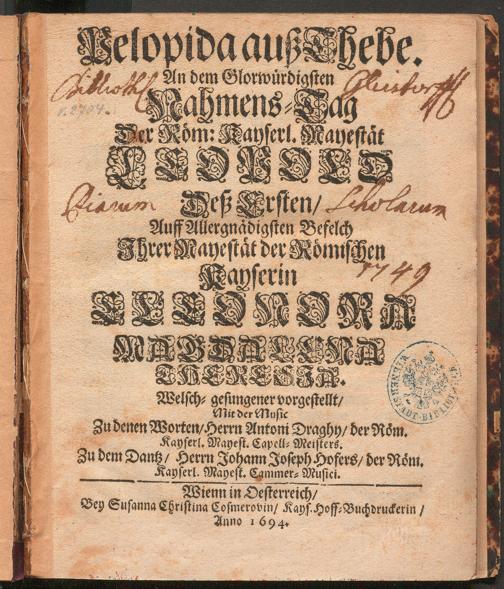 Pelopida auß Thebe.
An dem Glorwürdigsten
Nahmens-Tag
Der Röm: Kayserl. Mayestät
LEOPOLD
Deß Ersten/
Auff Allergnädigsten Befelch
Ihrer Mayestät der Römischen
Kayserin
ELEONORA
MAGDALENA
THERESIA.
Welsch-gesungener vorgestellt/
Mit der Music
Zu denen Worten/Herrn Antoni Draghy/der Röm.
Kayserl. Mayest. Capell-Meisters.
Zu dem Dantz/ Herrn Johann Joseph Hofers/der Röm.
Kayserl. Mayest. Cammer-Musici.
Wienn in Oesterreich/
Bey Susanna Christina Cosmerovin/ Kays.Hoff-Buchdruckerin/
Anno 1694.
Piarum Scholarum
1749